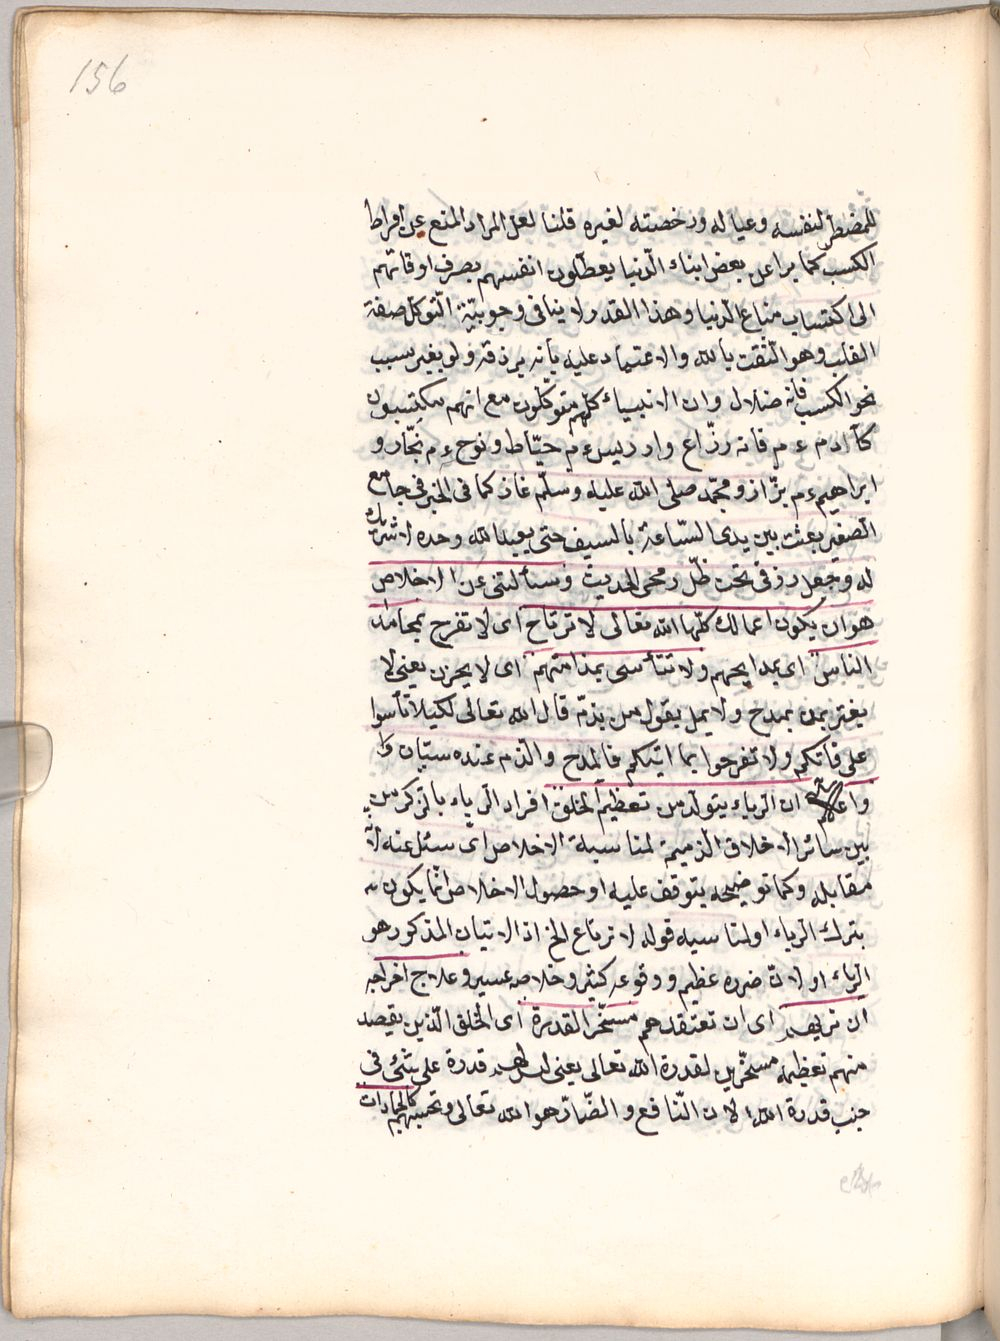 156
للمضطر لنفسه وعياله ورخصته لغيره قلنا لعل المراد المنع عن افراط
الكسب كما يراعى بعض ابناء الدّنيا يعطّلون انفسهم بصرف اوقاتهم
الى اكتساب متاع الدّنيا وهذا القدر لا ينافى وجوبيّة التّوكل صفة
القلب وهو الثّقت بالله والاعتماد عليه بأنه يرزقه ولو بغير سبب
نحو الكسب فانه ضلال وان الانبياء كلهم متوكّلون مع انهم مكتسبون
كآدم ءم فانه رزّاع وادريس ءم خيّاط ونوح ءم نجّار و
ابراهيم ءم بزّاز ومحمّد صلى الله عليه وسلّم غاز كما فى الخبر فى جامع
الصّغير بعثت بين يدى السّاعة بالسيف حتى يعبد الله وحده لا شريك
له وجعل رزقى تحت ظلّ رمحى الحديث وسئالتنى عن الاخلاص
هو ان يكون اعمالك كلّها الله تعالى لا ترتاح اى لا تفرح بمحامد
الناس اى بمدايحهم ولا تتأسى بمذامتهم اى لا يحزن يعنى لا
يغتر بمن يمدح ولا يمل بقول من يذمّ قال الله تعالى لكيلا تأسوا
على فاتكم ولا تفرحوا بما اتيكم فالمدح والذم عنده سيّان
واعلم ان الرياء يتولد من تعظيم الخلق افراد الرياء بالذكر من
بين سائر الاخلاق الذميمة لمناسبة الاخلاص اى سئل عنه
مقابله وكما توضيحه يتوقف عليه او حصول الاخلاص انّما يكون
بترك الرياء او لمناسبه قوله لا ترتاع الخ اذ الاتيان المذكور هو
الرياء او لان ضرره عظيم ووقوعه كثير وخلاصه عسير وعلاج اخراجه
ان تريهم اى ان تعتقدهم مسخّر القدرة اى الخلق الّذين يقصد
منهم تعظيمه مسخّرين لقدرة الله تعالى يعنى ليس لهم قدرة على شئ فى
جنب قدرة الله لان النّافع و الضّارّ هو الله تعالى وتحسبهم كالجمادات